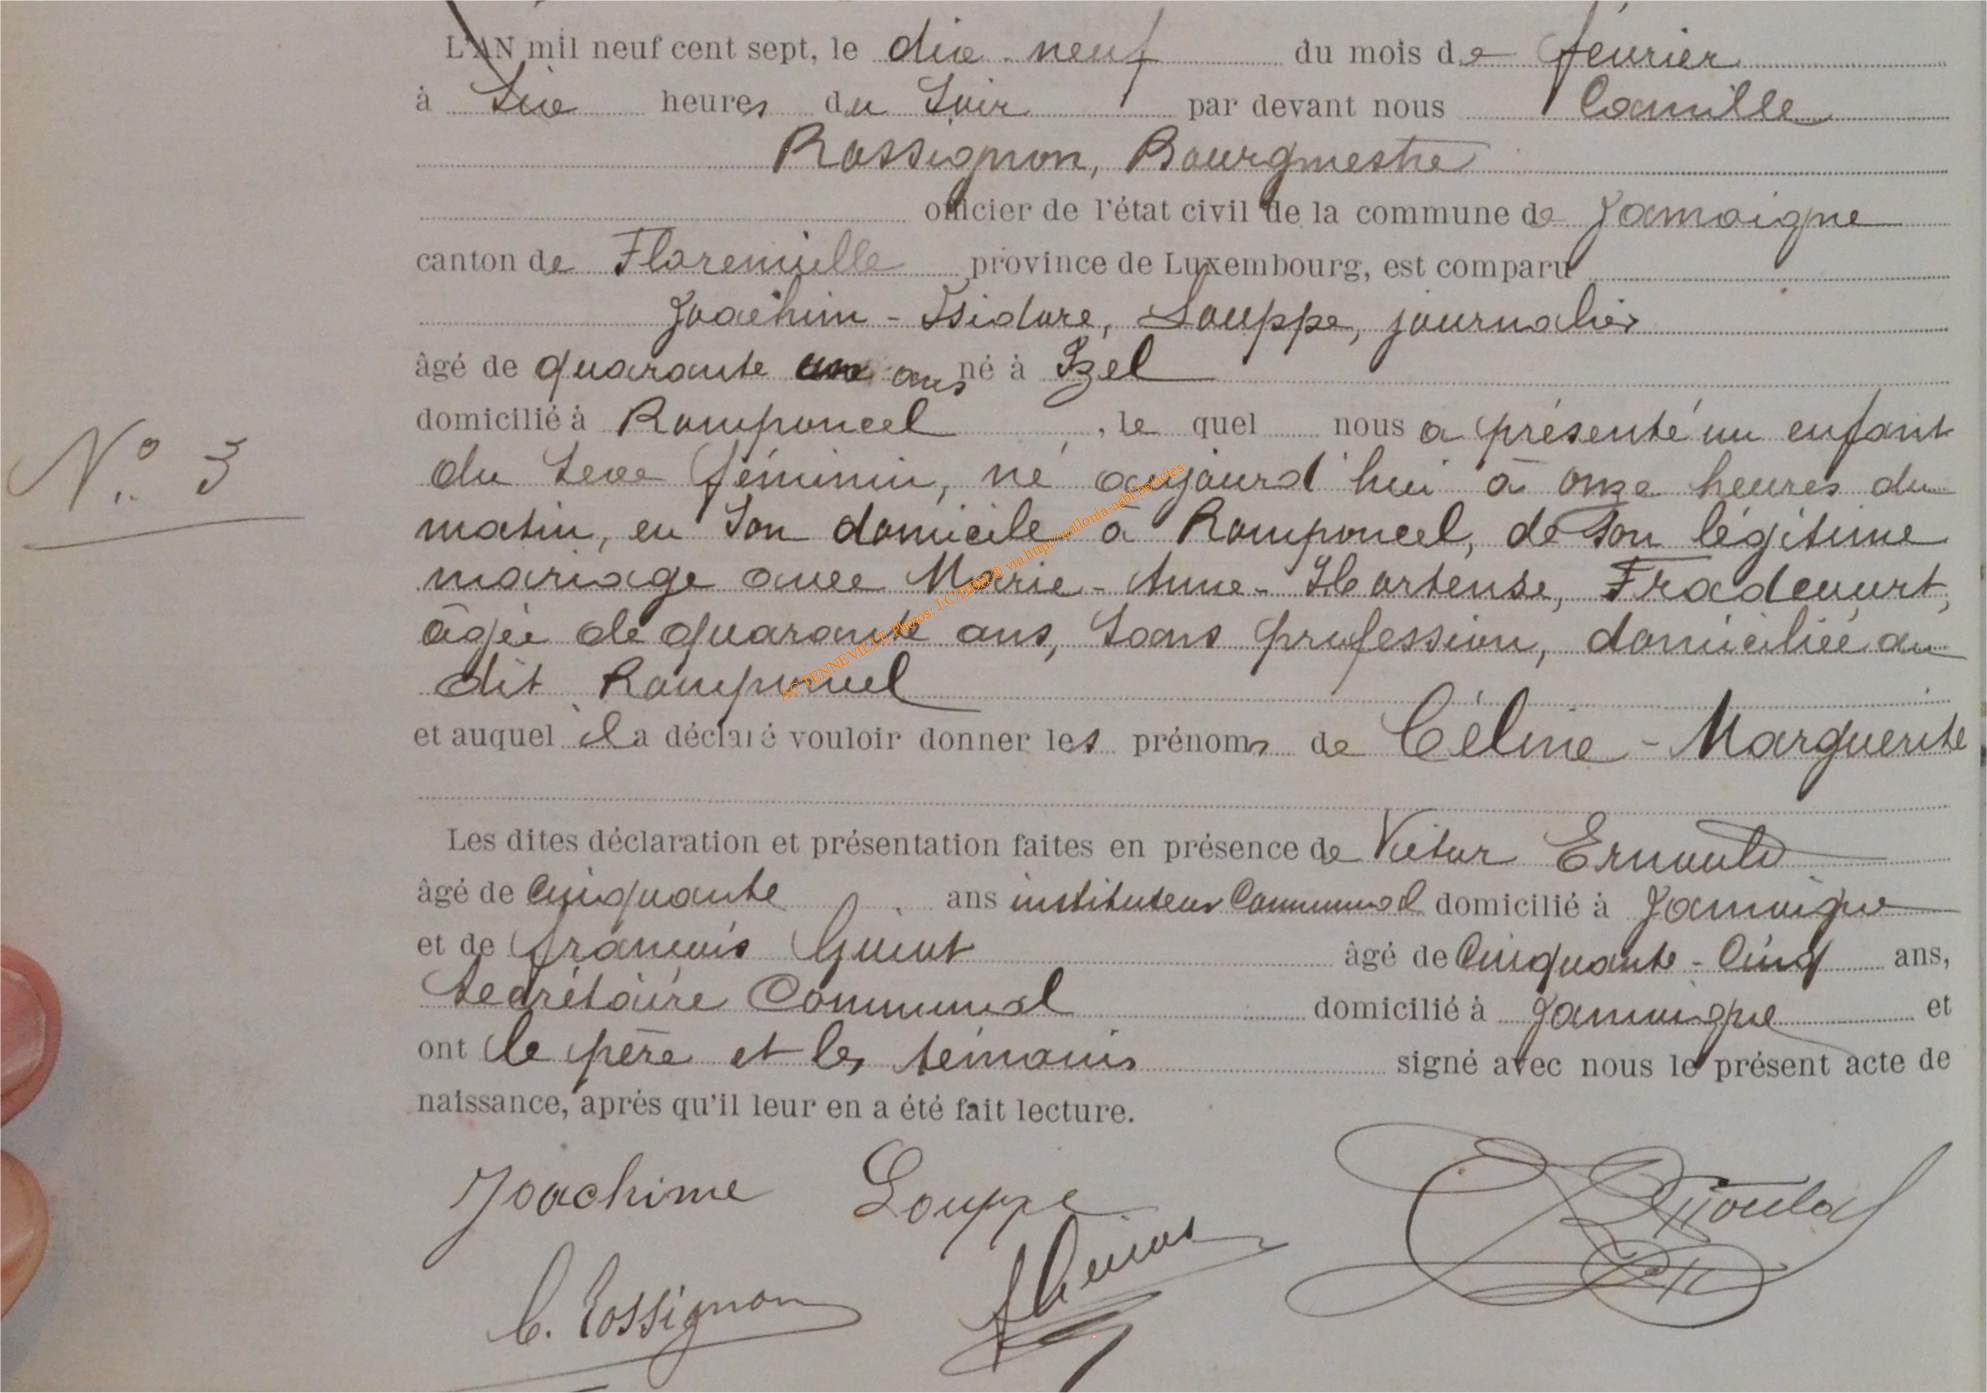 L'AN mil neuf cent sept, le dix-neuf du mois de février
à Six heures du Soir par devant nous Camille
Rossignon, Bourgmestre
officier de l'état civil de la commune de Jamoigne
canton de Florenville province de Luxembourg, est comparu
Joachim-Isidore, Louppe, journalier
âgé de quarante un ans né à Izel
domicilié à Romponcel, le quel nous a présenté un enfant
N° 3
du Sexe féminin, né aujourd'hui à onze heures du
matin, en Son domicile à Romponcel, de Son légitime
mariage avec Marie-Anne-Hortense, Fradcourt,
âgée de quarante ans, Sans profession, domiciliée au
dit Romponcel
et auquel il a déclaré vouloir donner les prénoms de Céline-Marguerite
Les dites déclaration et présentation faites en présence de Victor
âgé de Cinquante ans instituteur Communal domicilié à Jamoigne
et de François Guiot âgé de Cinquante-Cinq ans,
Secrétaire Communal domicilié à Jamoigne et
ont le père et les témoins signé avec nous le présent acte de
naissance, après qu'il leur en a été fait lecture.
Joachime Louppe
C. Rossignon